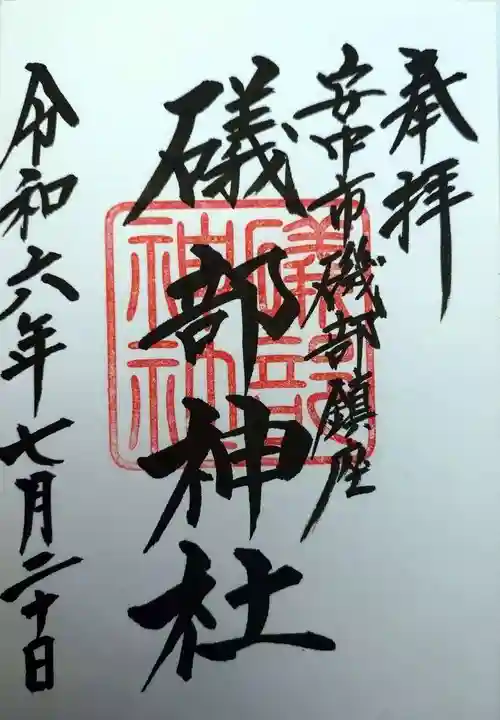 奉拝
安中市磯部鎮座
礒部神社
令和六年七月二十日
礒部
神社